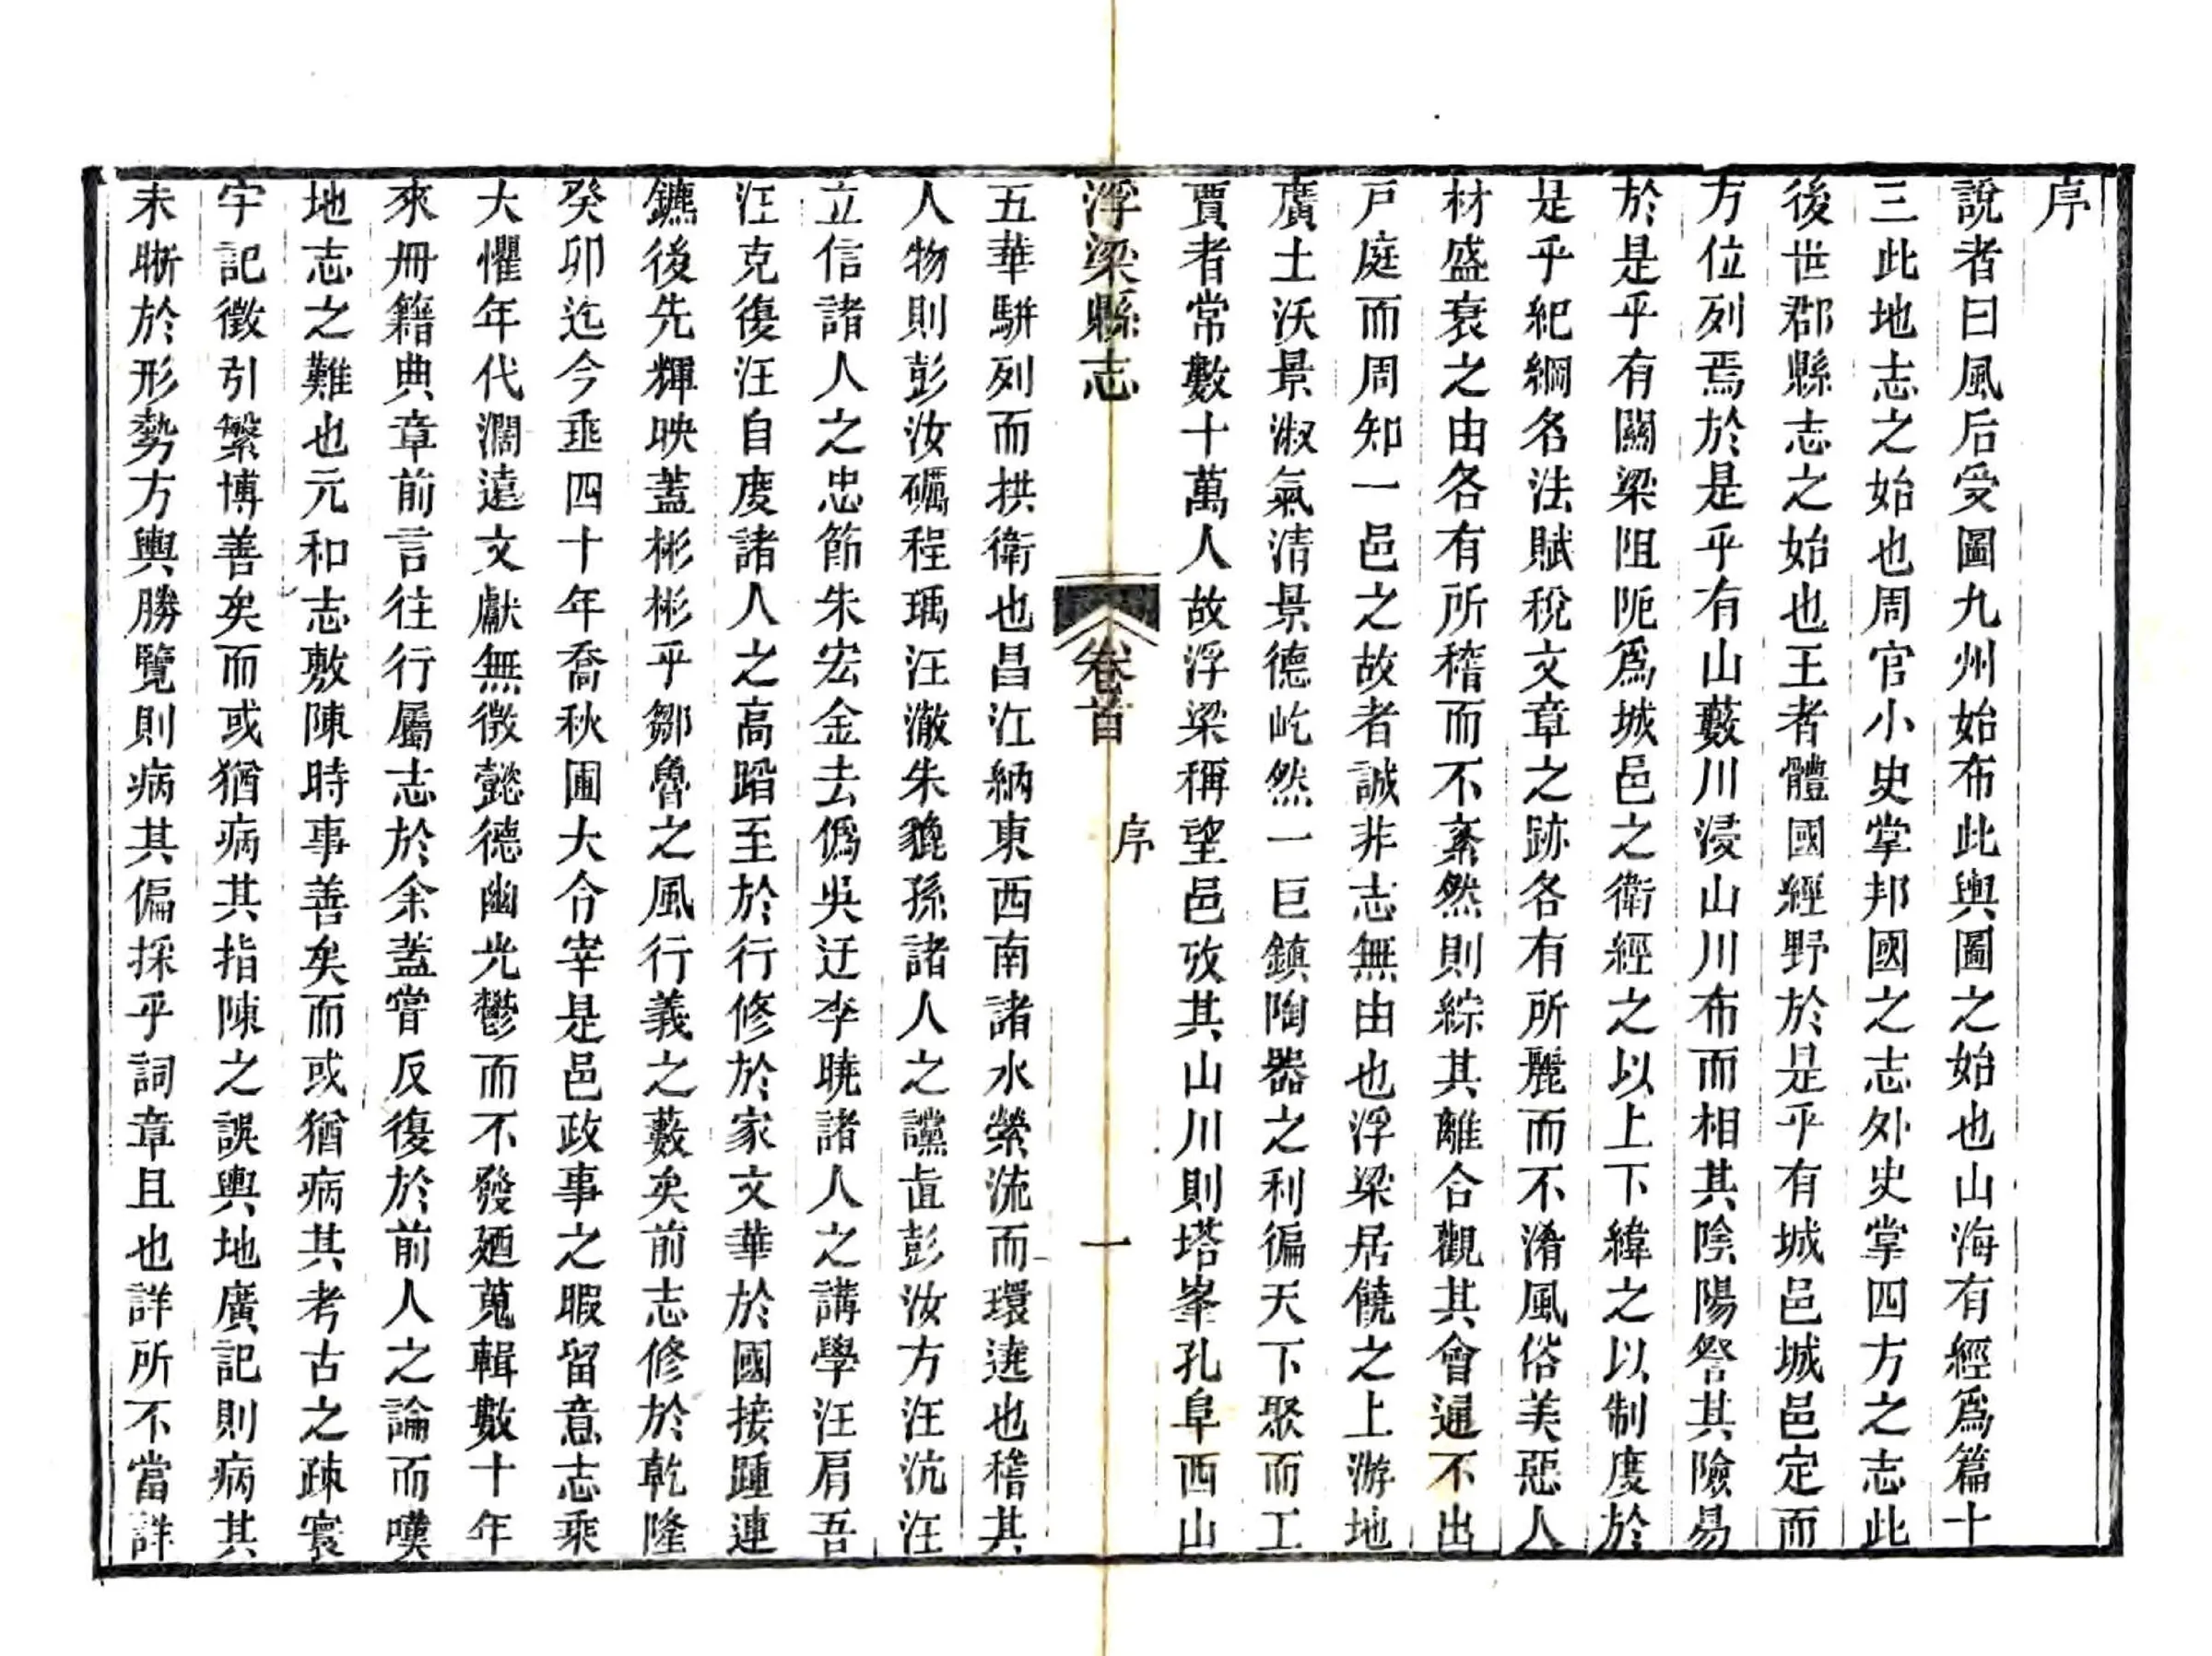 序
說者曰風后受圖九州始布此輿圖之始也山海有經爲篇十
三此地志之始也周官小史掌邦國之志外史掌四方之志此
後世郡縣志之始也王者體國經野於是乎有城邑城邑定而
方位列焉於是乎有山藪川浸山川布而相其陰陽詧其險易
於是乎有關梁阻阨爲城邑之衛經之以上下緯之以制度於
是乎紀綱名法賦稅文章之跡各有所麗而不淆風俗美惡人
材盛衰之由各有所稽而不紊然則綜其離合觀其會通不出
戸庭而周知一邑之故者誠非志無由也浮梁居饒之上游地
廣土沃景淑氣清景德屹然一巨鎮陶器之利徧天下聚而工
賈者常數十萬人故浮梁稱望邑攷其山川則塔峯孔阜西山
浮梁縣志
卷首
序
一
五華駢列而拱衛也昌江納東西南諸水縈流而環遶也稽其
人物則彭汝礪程瑀汪澈朱貔孫諸人之讜直彭汝方汪沆汪
立信諸人之忠節朱宏金去僞吳迂李曉諸人之講學汪肩吾
汪克復汪自度諸人之高蹈至於行修於家文華於國接踵連
鑣後先輝映蓋彬彬乎鄒魯之風行義之藪矣前志修於乾隆
癸卯迄今垂四十年喬秋圃大令宰是邑政事之暇留意志乘
大懼年代濶遠文獻無徵懿德幽光鬱而不發廼蒐輯數十年
來冊籍典章前言往行屬志於余蓋嘗反復於前人之論而嘆
地志之難也元和志敷陳時事善矣而或猶病其考古之疎寰
宇記徵引繁博善矣而或猶病其指陳之誤輿地廣記則病其
未晰於形勢方輿勝覽則病其偏採乎詞章且也詳所不當詳